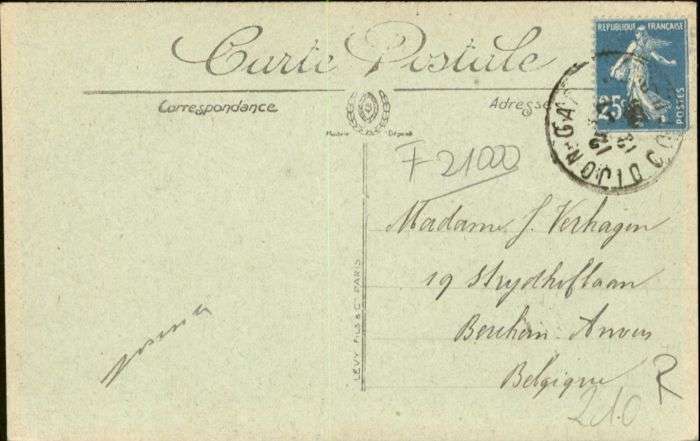 Carte Postale
Correspondance
Adresse
RÉPUBLIQUE FRANÇAISE
25c
POSTES
DIJON GA
Modèle Déposé
F 21000
Madame J. Verhagen
19 Strydhoflaan
Berchem-Anvers
Belgique
R
210
LÉVY FILS & Cie PARIS